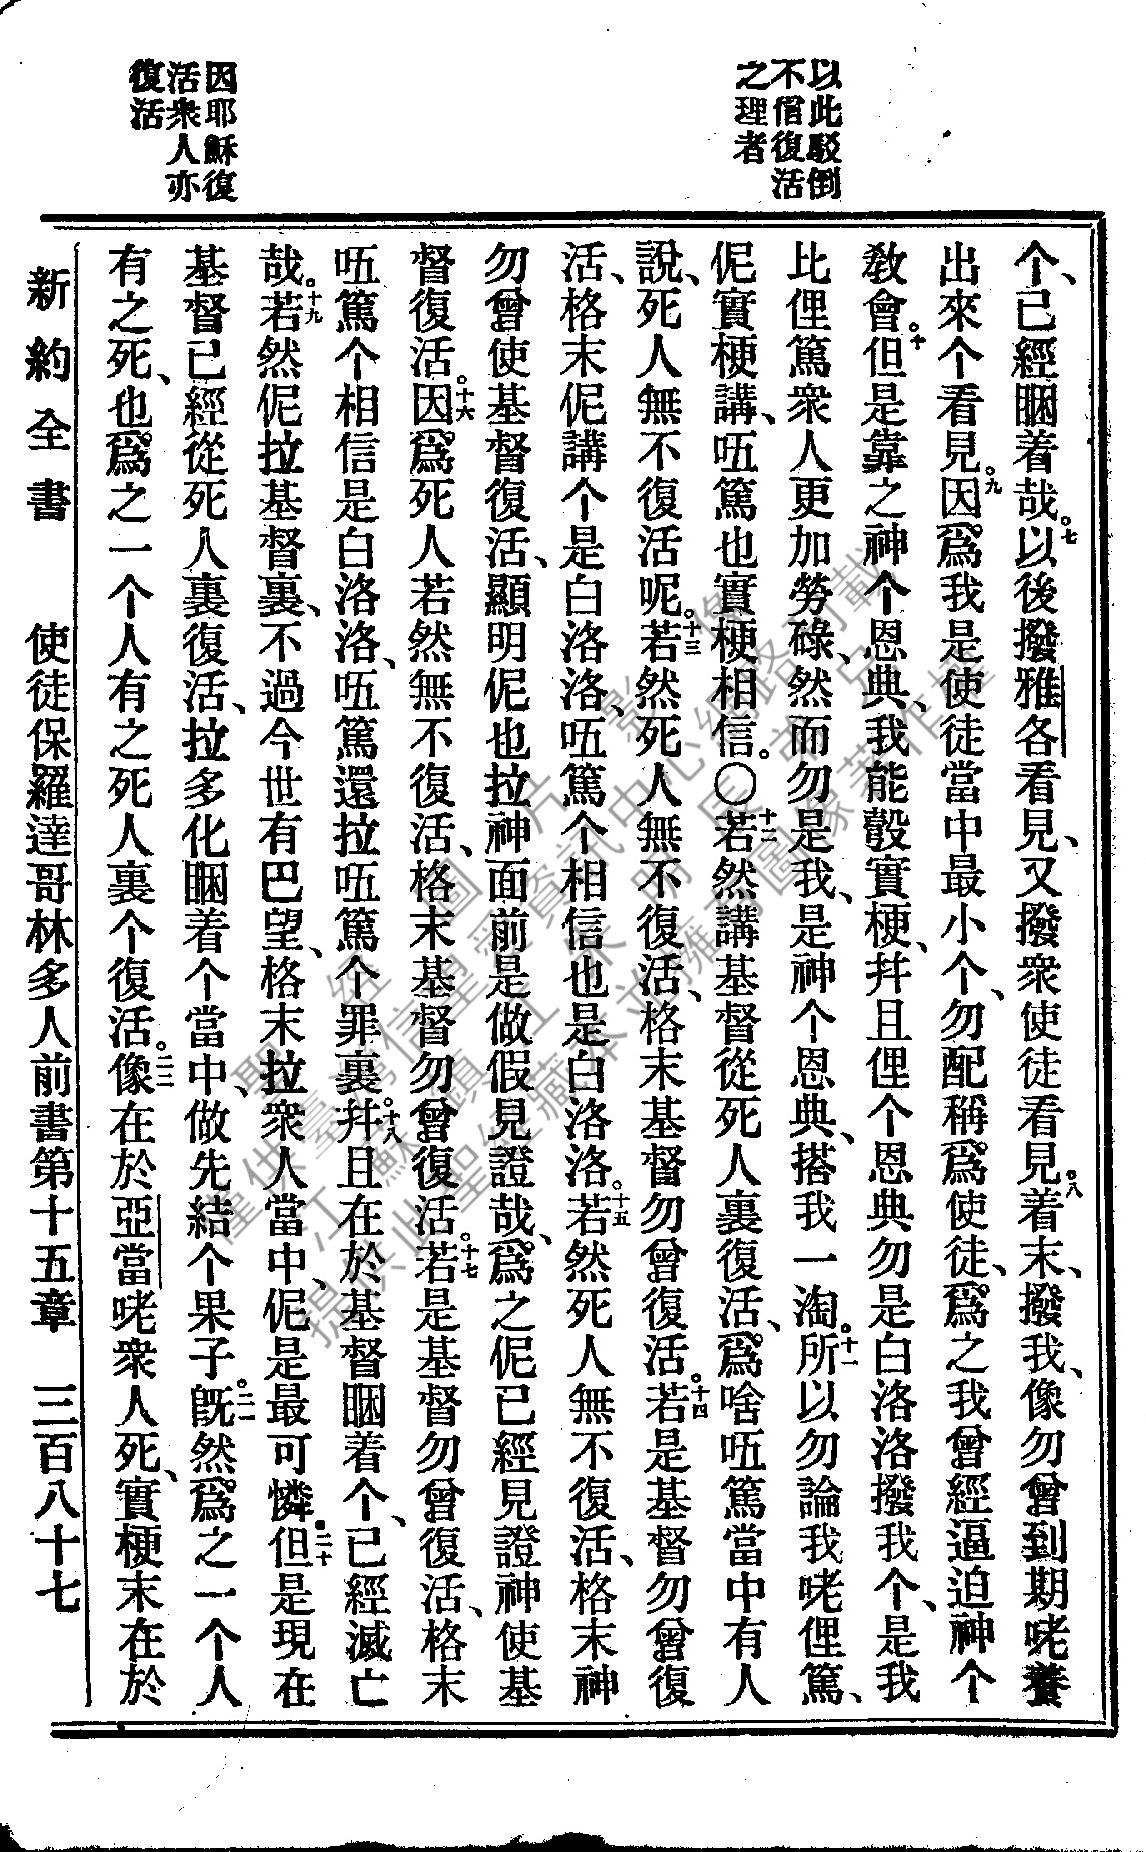 以此駁倒
不信復活
之理者
因耶穌復
活衆人亦
復活
个、已經睏着哉。七以後撥雅各看見、又撥衆使徒看見。八着末、撥我、像勿曾到期咾養
出來个看見。九因爲我是使徒當中最小个、勿配稱爲使徒、爲之我曾經逼迫神个
敎會。十但是靠之神个恩典、我能彀實梗、幷且俚个恩典勿是白洛洛撥我个、是我
比俚篤衆人更加勞碌、然而勿是我、是神个恩典、搭我一淘。十一所以勿論我咾俚篤、
伲實梗講、㕶篤也實梗相信。〇十二若然講基督從死人裏復活、爲啥㕶篤當中有人
說、死人無不復活呢。十三若然死人無不復活、格末基督勿曾復活。十四若是基督勿曾復
活、格末伲講个是白洛洛、㕶篤个相信也是白洛洛。十五若然死人無不復活、格末神
勿曾使基督復活、顯明伲也拉神面前是做假見證哉、爲之伲已經見證神使基
督復活。十六因爲死人若然無不復活、格末基督勿曾復活。十七若是基督勿曾復活、格末
㕶篤个相信是白洛洛、㕶篤還拉㕶篤个罪裏。十八幷且在於基督睏着个、已經滅亡
哉。十九若然伲拉基督裏、不過今世有巴望、格末拉衆人當中、伲是最可憐。二十但是現在
基督已經從死人裏復活、拉多化睏着个當中、做先結个果子。二一旣然爲之一个人
有之死、也爲之一个人有之死人裏个復活。二二像在於亞當咾衆人死、實梗末在於
新約全書 使徒保羅達哥林多人前書第十五章 三百八十七
僅供臺灣信望愛資訊中心網路刊載